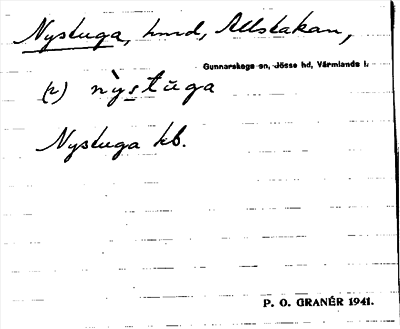 Nystuga, hmd, Allstakan,
Gunnarskogs sn, Jösse hd, Värmlands l.
(2) nỳstūga
Nystuga kb.
P. O. GRANÉR 1941.